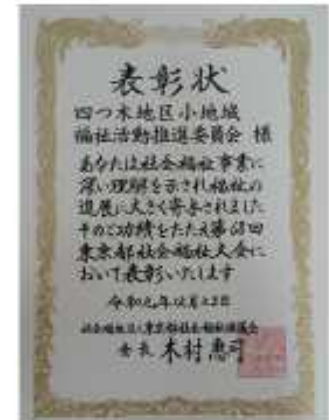 表彰状
四つ木地区小地域
福祉活動推進委員会 様
あなたは社会福祉事業に
深い理解を示され福祉の
進展に大きく寄与されました
そのご功績をたたえ第68回
東京都社会福祉大会に
おいて表彰いたします
令和元年12月23日
社会福祉法人東京都社会福祉協議会
会長 木村惠司